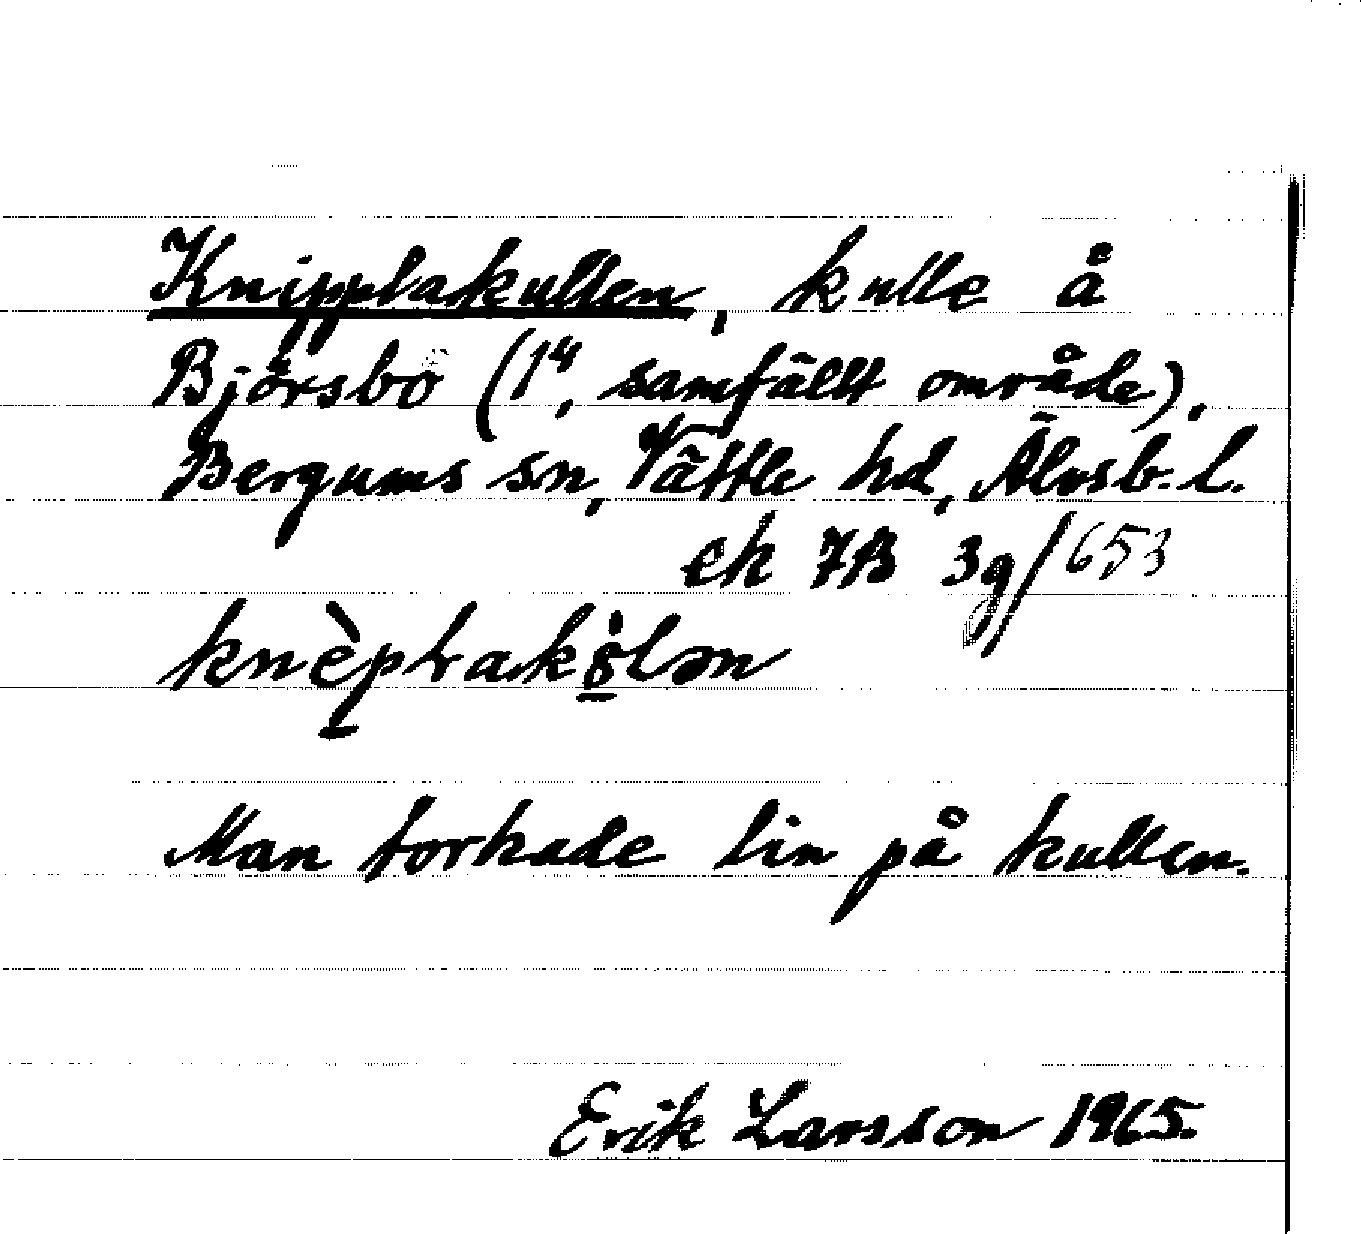 Knipplakullen, kulle å
Björsbo (1⁴, samfällt område),
Bergums sn, Vättle hd, Älvsb. l.
ek 7B 3g/653
knèplakölən
Man torkade lin på kullen.
Erik Larsson 1965.